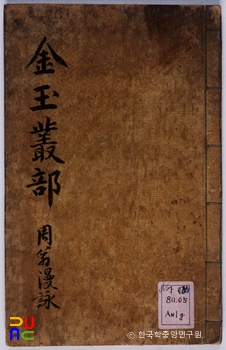 金玉叢部
周翁漫詠
811.05
An1g
© 한국학중앙연구원